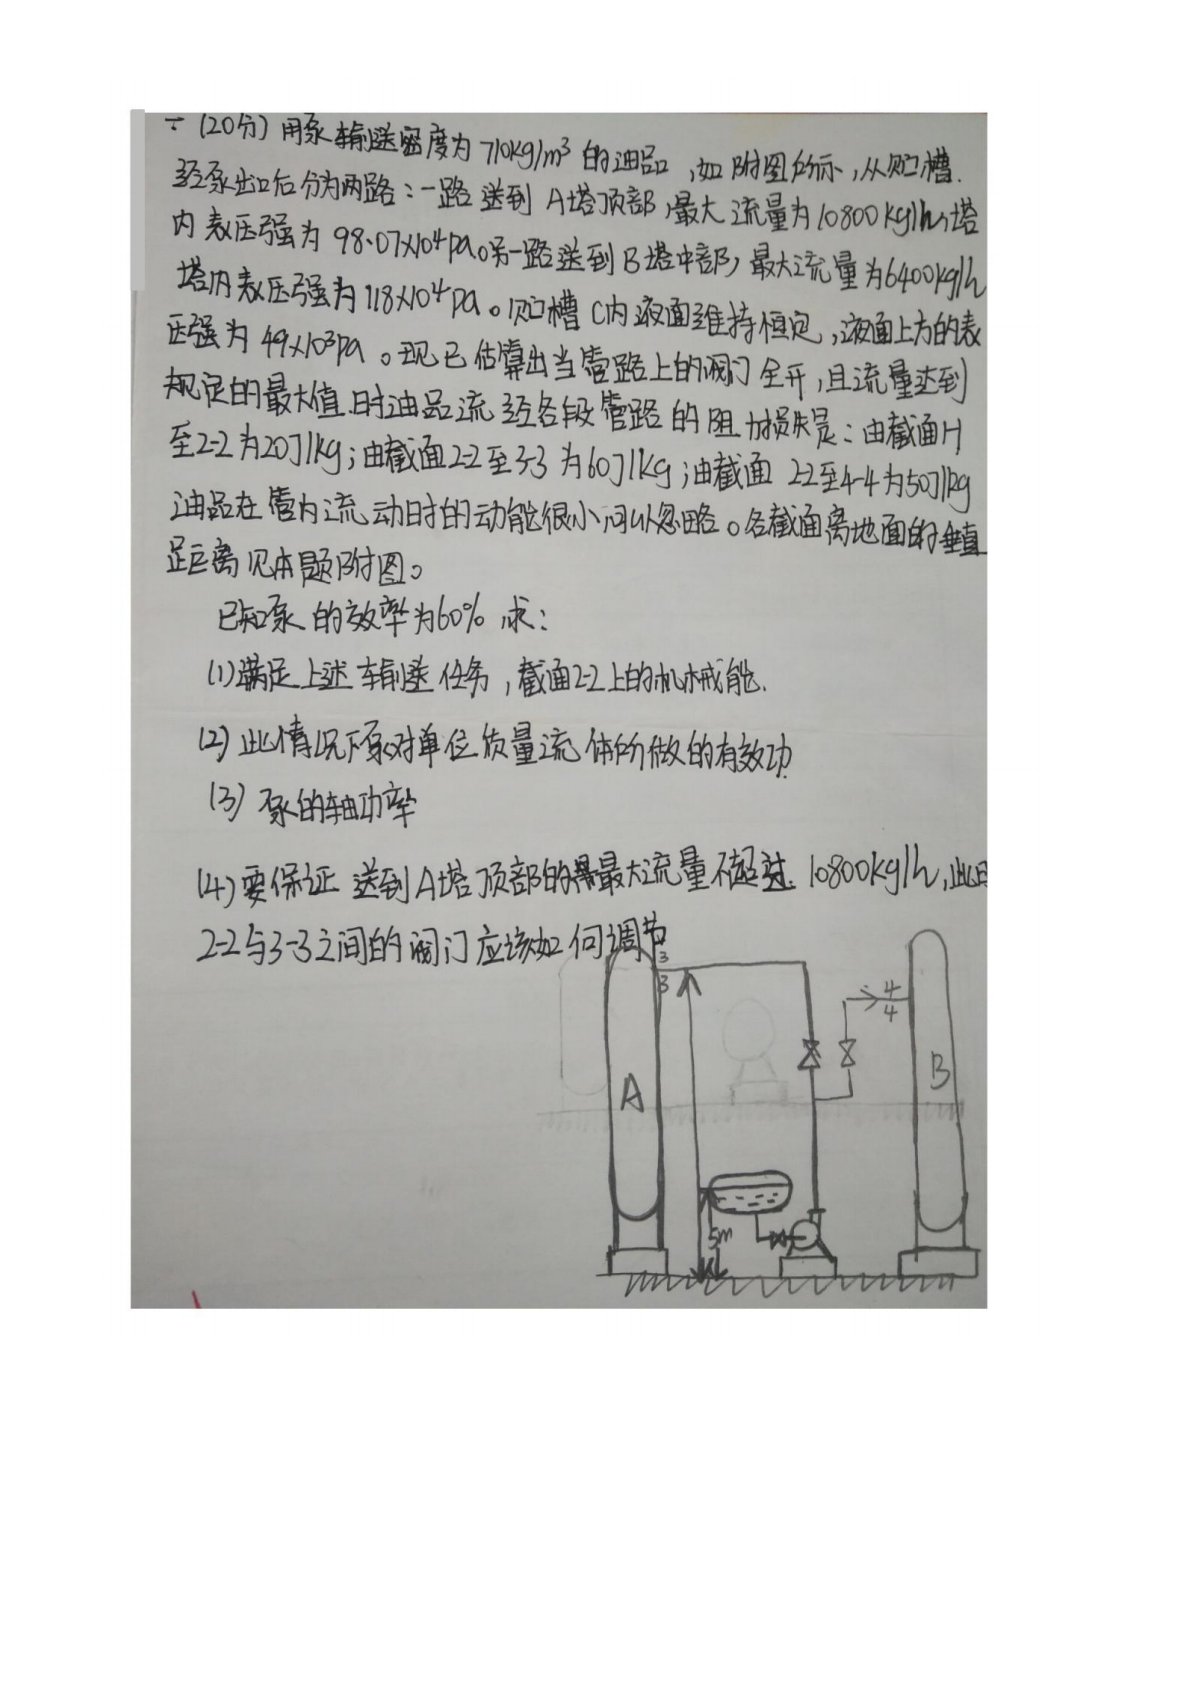 (20分) 用泵输送密度为 710kg/m³ 的油品,如附图所示,从贮槽.
经泵出口后分为两路:一路送到 A塔顶部,最大流量为10800kg/h,塔
内表压强为 98.07×10⁴Pa。另一路送到B塔中部,最大流量为6400kg/h
塔内表压强为118×10⁴Pa。贮槽 C内液面维持恒定,液面上方的表
压强为 49×10³Pa。现已估算出当管路上的阀门全开,且流量达到
规定的最大值时油品流经各段管路的阻力损失是:由截面1-1
至2-2为20J/kg;由截面2-2至3-3为60J/kg;由截面 2-2至4-4为50J/kg
油品在管内流动时的动能很小,可以忽略。各截面离地面的垂直
距离见本题附图。
已知泵的效率为60%,求:
(1)满足上述输送任务,截面2-2上的机械能.
(2)此情况下泵对单位质量流体所做的有效功.
(3) 泵的轴功率
(4)要保证送到A塔顶部的最大流量不超过.10800kg/h,此时
2-2与3-3之间的阀门应该如何调节
3
3
4
4
A
B
5m